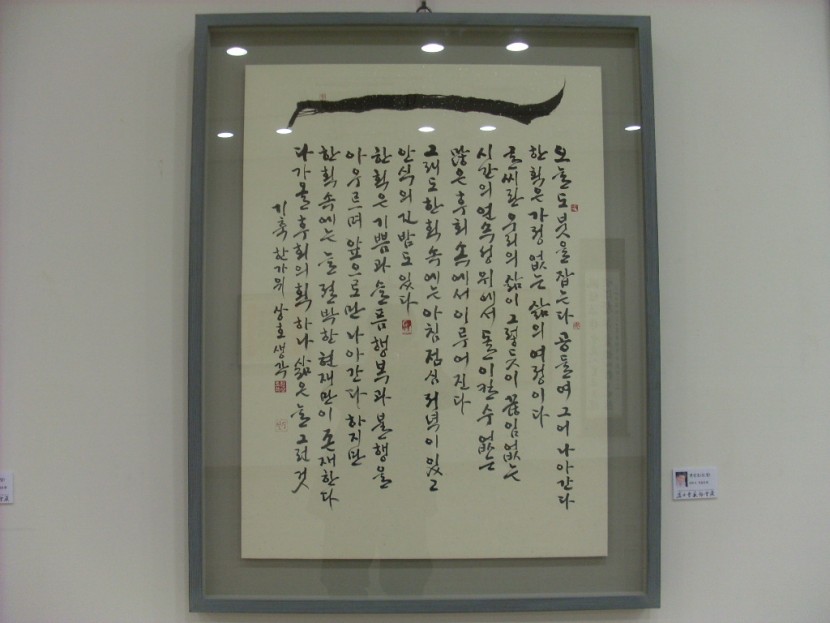 오늘도 붓을 잡는다 공들여 그어 나아간다
한획은 가렁 없는 삶의 여정이다
글씨란 우리의 삶이 그렇듯이 끊임없는
시간의 연속성 위에서 돌이킬 수 없는
많은 후회 속에서 이루어진다
그래도 한획 속에는 아침 점심 저녁이 있고
안식의 긴 밤도 있다
한획은 기쁨과 슬픔 행복과 불행을
아우르며 앞으로만 나아간다 하지만
한획 속에는 늘 절박한 현재만이 존재한다
다가올 후회의 획 하나 삶은 늘 그런 것
기축 한가위 상호생각